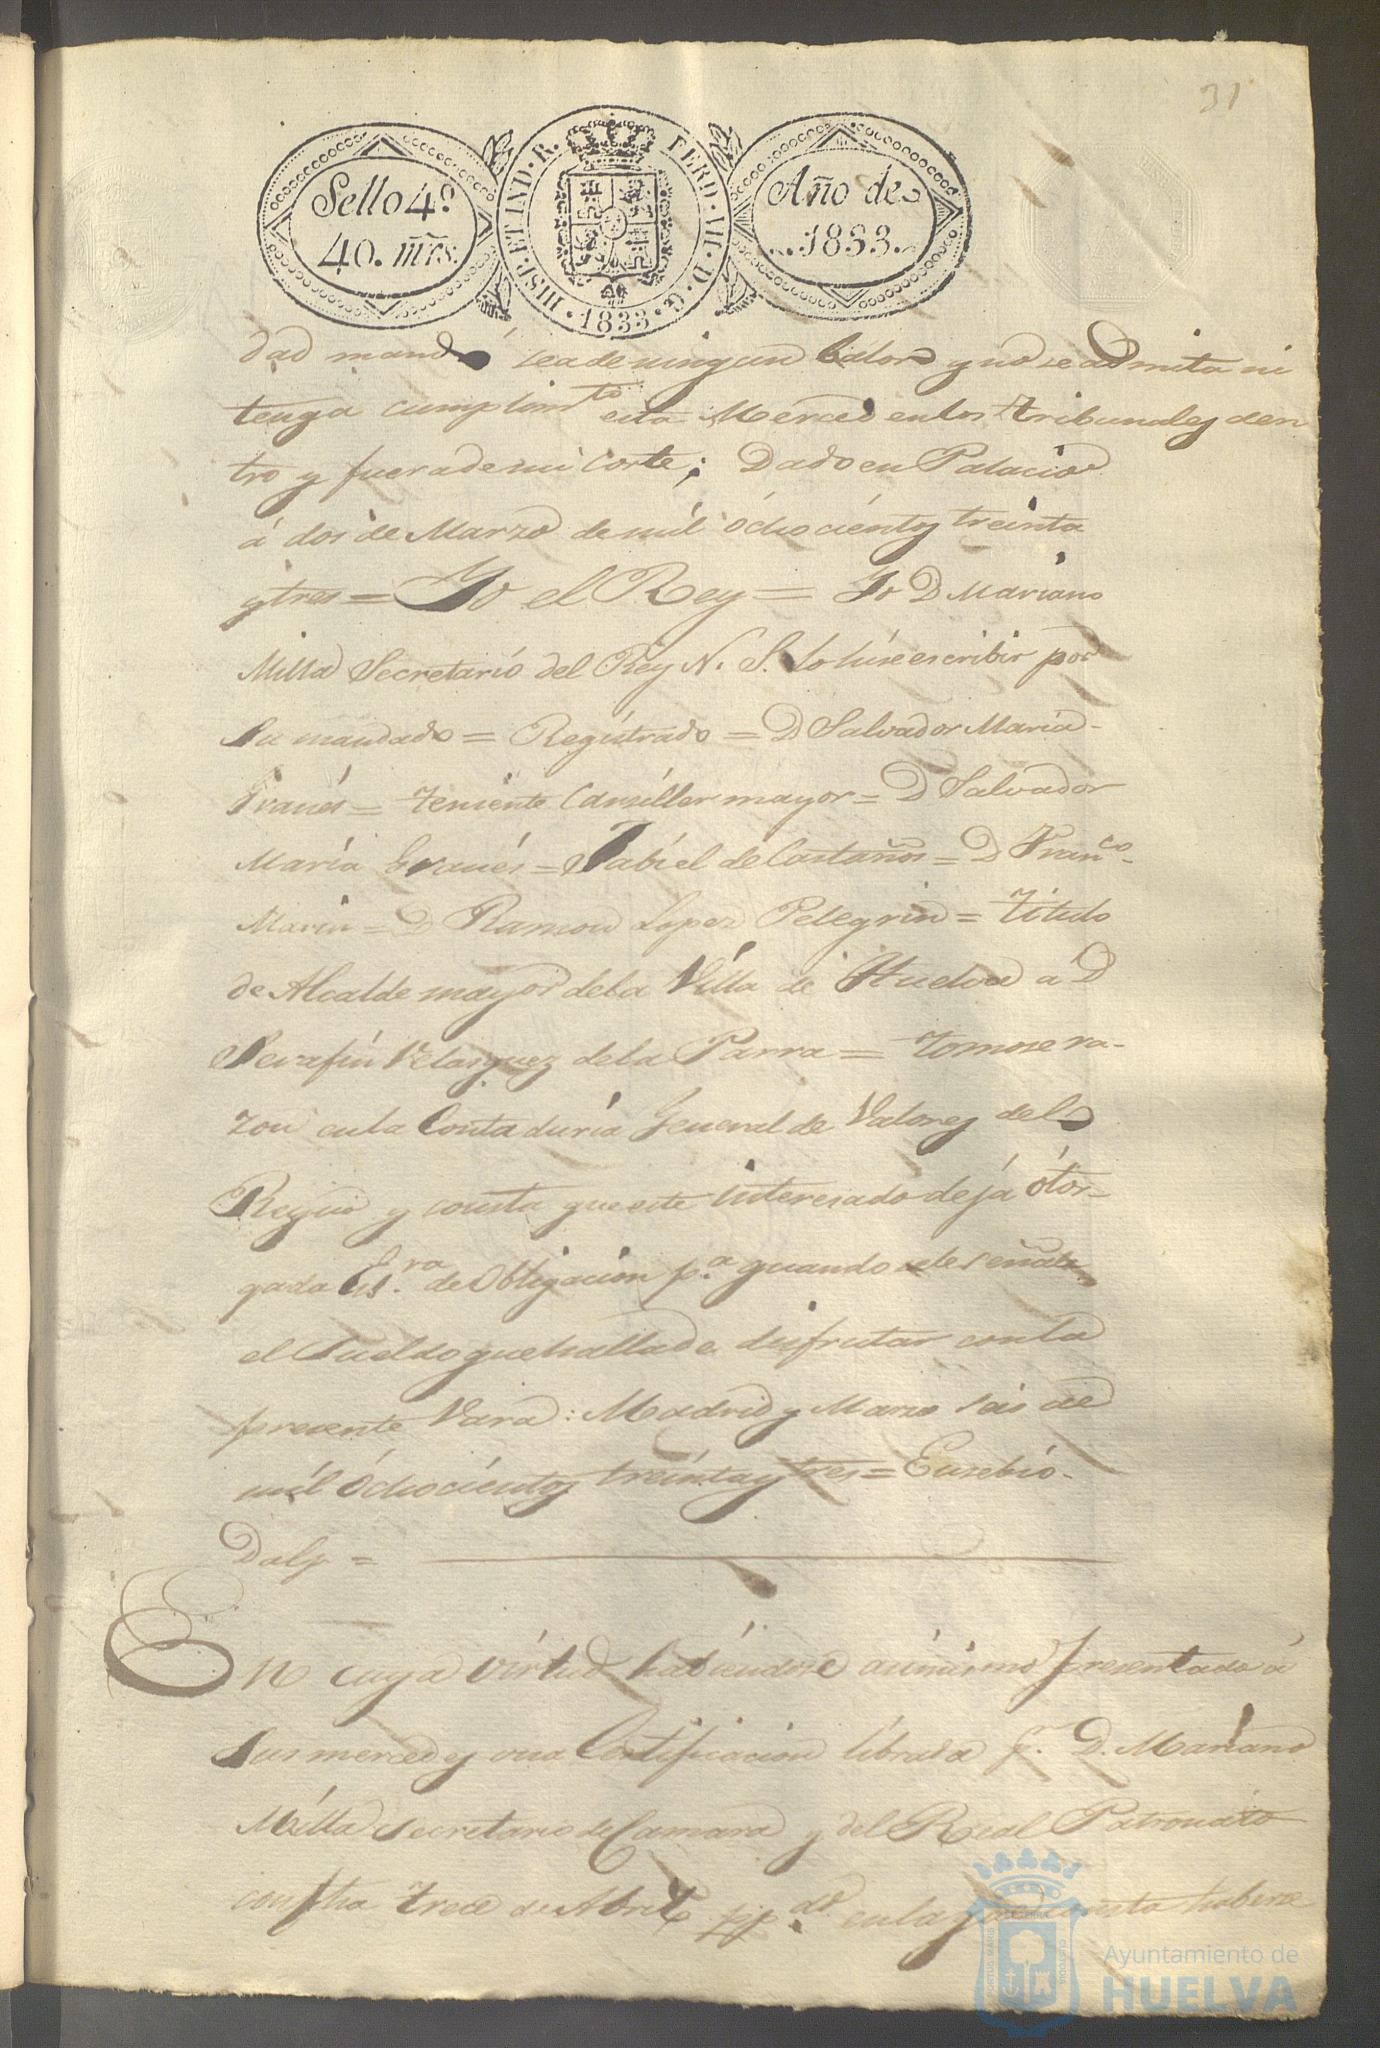 31
Sello 4º.
40. mrs.
HISP. ET IND. R. FERD. VII. D. G.
. 1833 .
Año de
1833.
dad mando sea de ningun balor y no se admita ni
tenga cumplimto esta Merced en los tribunales den
tro y fuera de mi Corte; Dado en Palacio
á dos de Marzo de mil óchocientos treinta
y tres = Yo el Rey = Yo D Mariano
Milla Secretario del Rey N. S. lo hize escribir por
Su mandado = Registrado = D Salvador María
Granés = teniente Canciller mayor = D Salvador
María Granés = Fabiel de Castaños = D Franco.
Marin = D Ramon Lopez Pelegrin = Titulo
de Alcalde mayor de la Villa de Huelva a D
Serafin Velasquez de la Parra = tomose ra-
zon en la Contaduria General de Valores del
Reyno y consta que este interesado deja ótor-
gada Esra. de Obligacion pa. quando se le señale
el Sueldo que halla de disfrutar con la
presente Vara: Madrid y Marzo seis de
mil óchocientos treinta y tres = Eusebio
Dalp =
En cuya virtud habiendose asimismo presentado á
Sus mercedes una Certificacion librada pr. D. Mariano
Milla Secretario de Camara y del Real Patronato
con fha trece de Abril ppdo. en la que consta haberse
Ayuntamiento de
HUELVA